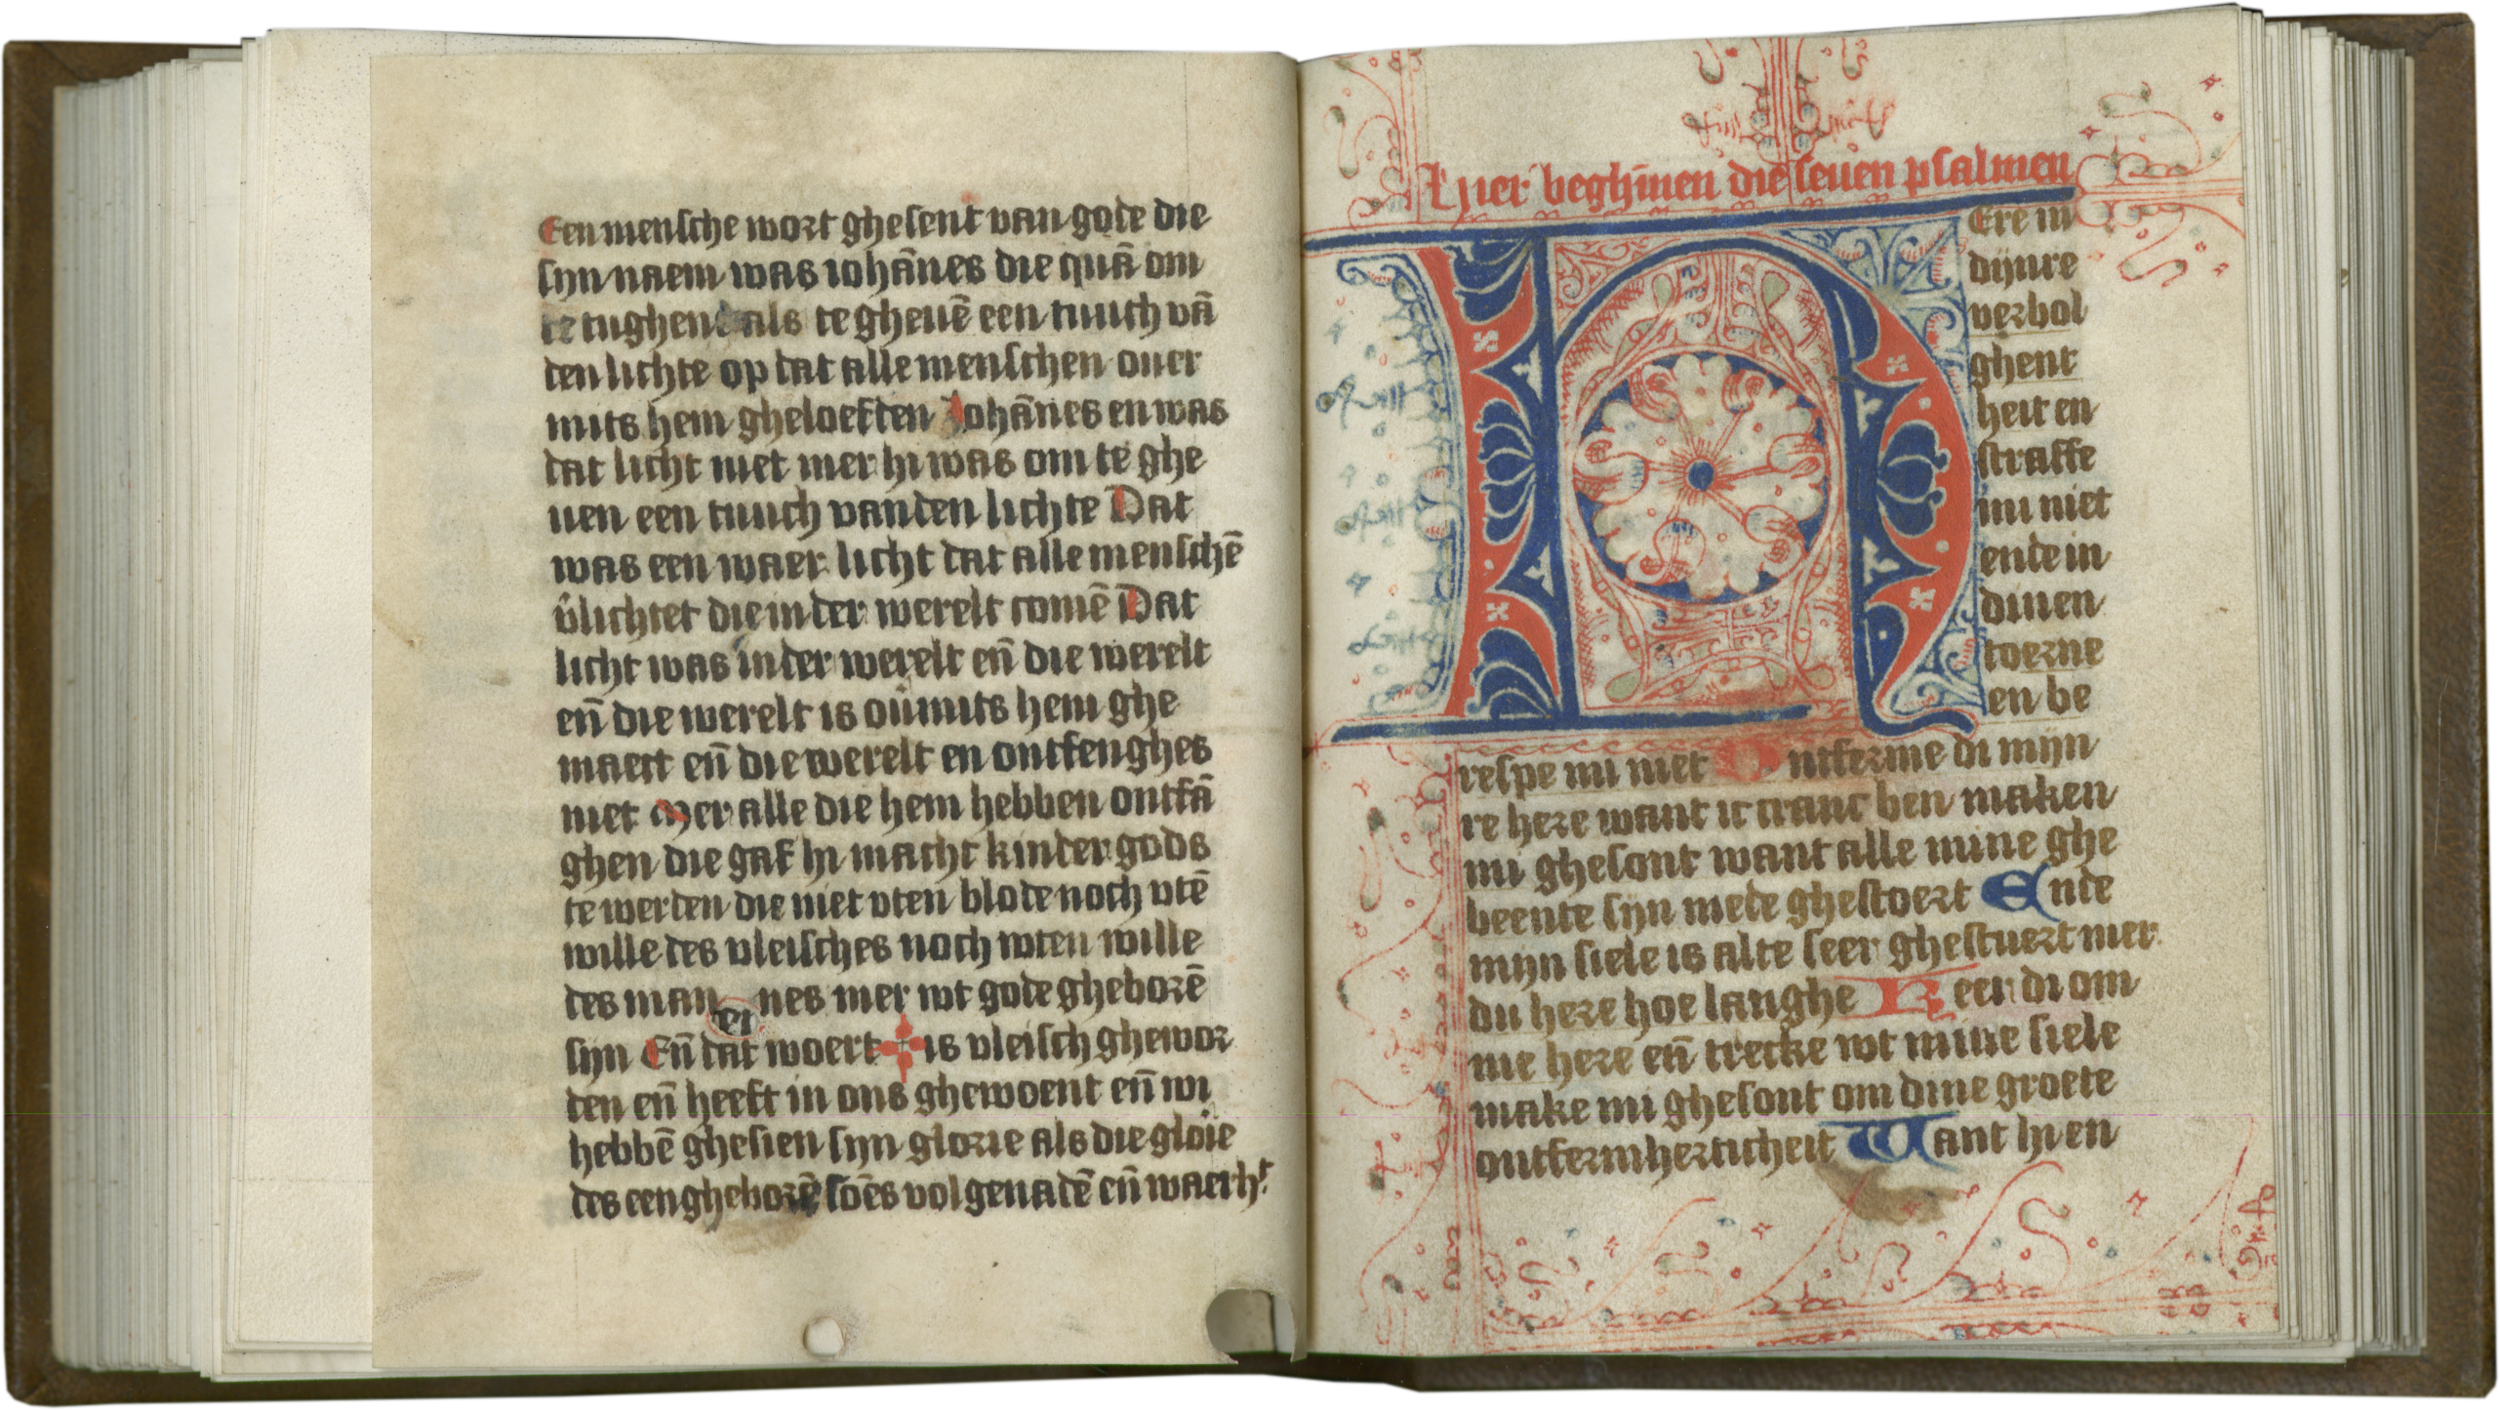 Een mensche wort ghesent van gode die
sijn naem was iohānes die quā om
te tughene als te gheuē een tuuch vā
den lichte op dat alle menschen ouer
mits hem gheloefden Iohānes en was
dat licht niet mer hi was om te ghe
uen een tuuch vanden lichte Dat
was een waer licht dat alle menschē
v̄lichtet die in der werelt comē Dat
licht was in der werelt eñ die werelt
eñ die werelt is ou̅mits hem ghe
maect eñ die werelt en ontfenghes
niet Mer alle die hem hebben ontfā
ghen die gaf hi macht kinder gods
te werden die niet vten blode noch vtē
wille des vleisches noch wten wille
des man nes mer wt gode gheborē
sijn Eñ dat woert is vleisch ghewor
den eñ heeft in ons ghewoent eñ wi
hebbē ghesien sijn glorie als die gloīe
des eengheborē soēs vol genadē eñ waerhᵗ
Hier beghīnen die seuen psalmen
HEre in
dijnre
verbol
ghent
heit en
straffe
mi niet
ende in
dinen
toerne
en be
respe mi niet Ontferme di mijn
re here want ic cranc ben maken
mi ghesont want alle mine ghe
beente sijn mede ghestoert Ende
mijn siele is alte seer ghestuert mer
du here hoe langhe Keer di om
me here eñ trecke wt mine siele
make mi ghesont om dine groete
ontfermherticheit Want hi en